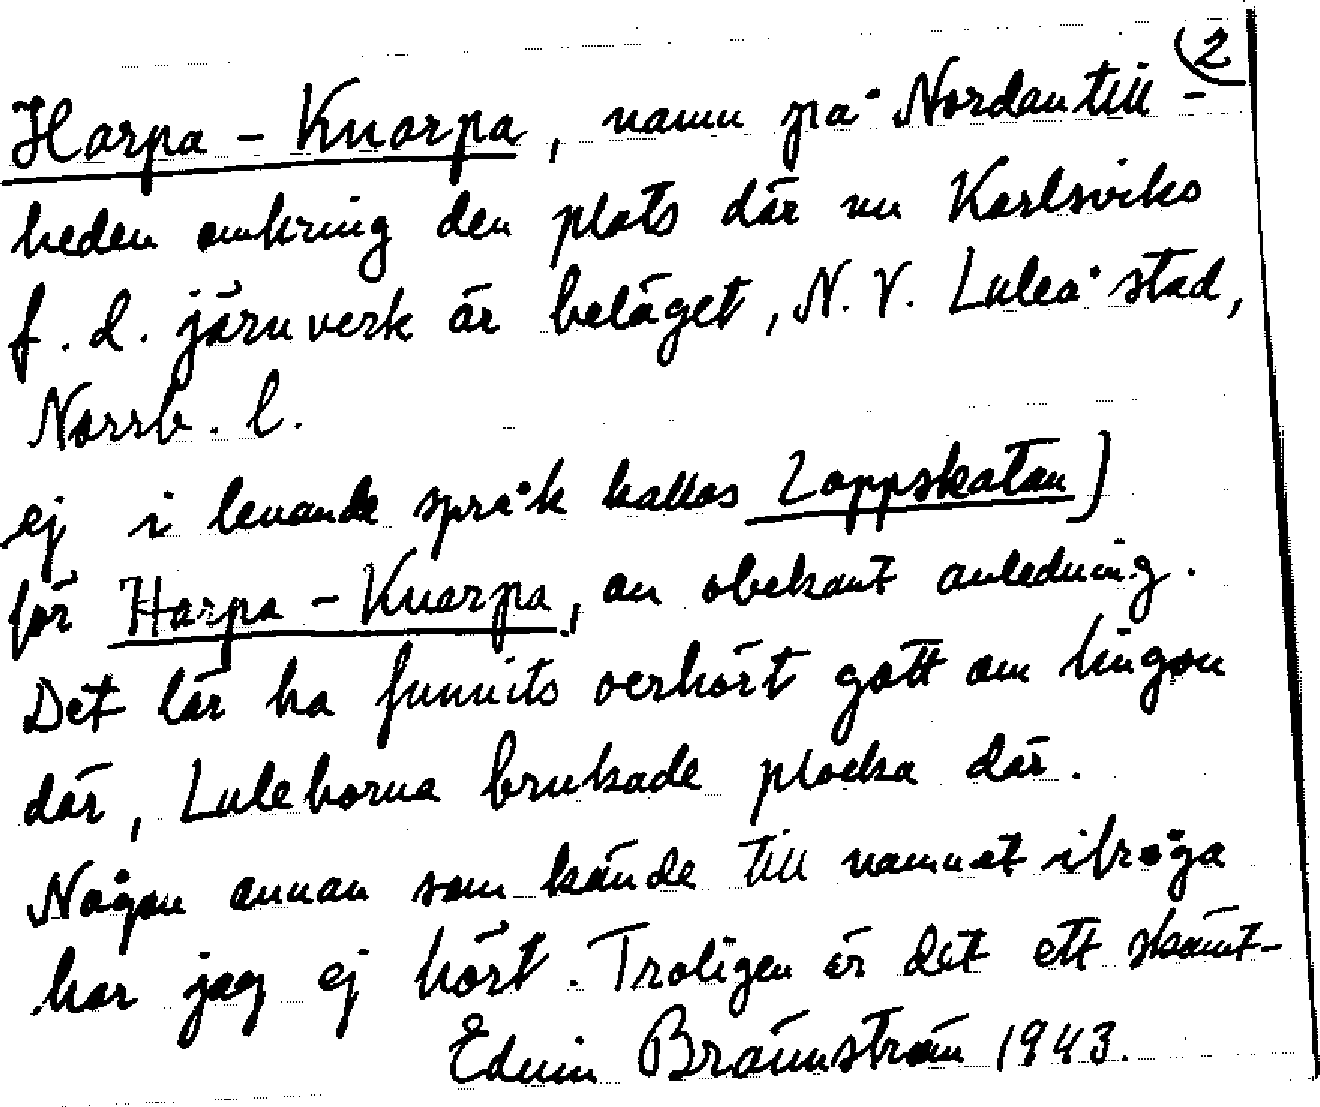 2
Harpa - Knarpa, namn på Nordantill-
heden omkring den plats där nu Karlsviks
f. d. järnverk är beläget, N. V. Luleå stad,
Norrb. l.
ej i levande språk kallas Loppskatan)
för Harpa - Knarpa, av obekant anledning.
Det lär ha funnits oerhört gott om lingon
där, Luleborna brukade plocka där.
Någon annan som kände till namnet ifråga
har jag ej hört. Troligen är det ett skämt-
Edvin Brännström 1943.